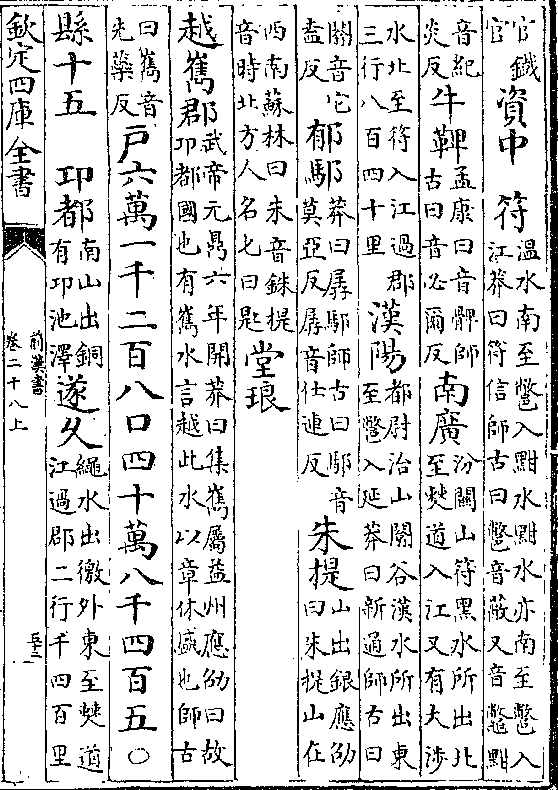 官鐵官資中 符溫水南至鄨入黚水黚水亦南至鄨入江莽曰符信師古曰鄨音蔽又音鷩黚
音紀炎反牛鞞孟康曰音髀師古曰音必爾反南廣汾關山符黑水所出北至僰道入江又有大涉
水北至符入江過郡三行八百四十里漢陽都尉治山闟谷漢水所出東至鄨入延莽曰新通師古曰
闟音它盍反郁䣖莽曰孱䣖師古曰䣖音莫亞反孱音仕連反朱提山出銀應劭曰朱提山在
西南蘇林曰朱音銖提音時北方人名匕曰匙堂琅
越巂郡武帝元鼎六年開莽曰集巂屬益州應劭曰故邛都國也有巂水言越此水以章休盛也師古
曰巂音先蘂反戸六萬一千二百八口四十萬八千四百五○
縣十五 邛都南山出銅有邛池澤遂久繩水出徼外東至僰道江過郡二行千四百里
欽定四庫全書
前漢書
卷二十八上